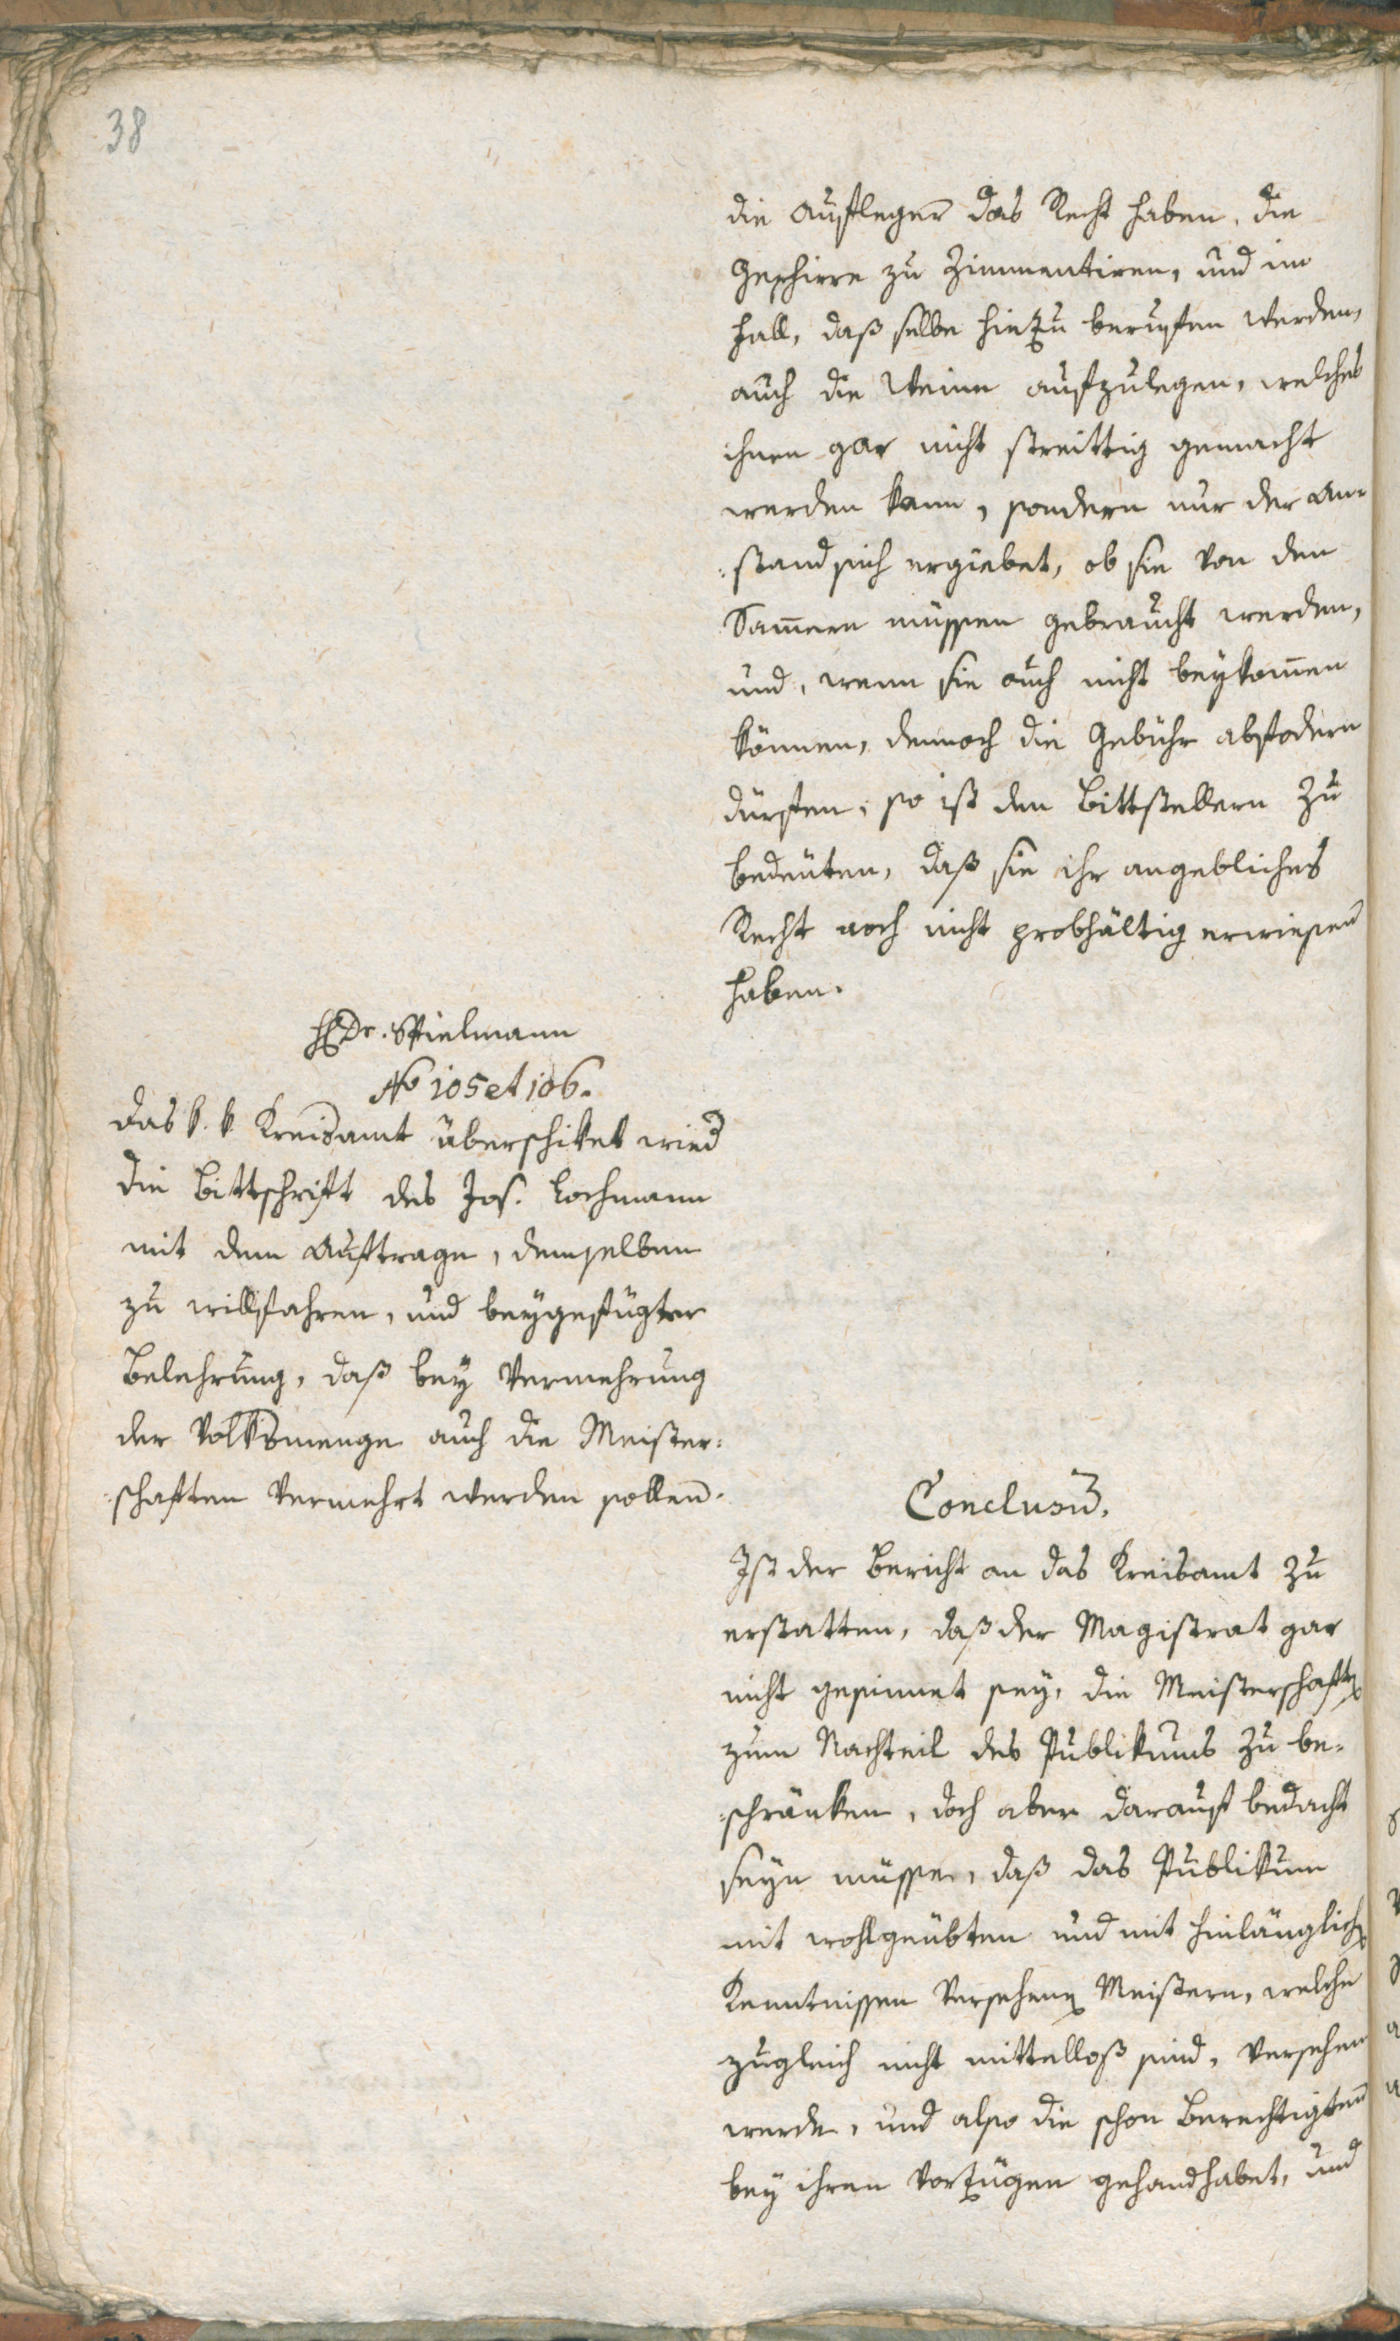 38
die Aufleger das Recht haben, die
Geschirre zu Zimmentiren, und im
Fall, daß selbe hiezu berufen werden,
auch die Weine aufzulegen, welches
ihnen gar nicht streittig gemacht
werden kann, sondern nur der An-
stand sich ergiebet, ob sie von den
müssen gebraucht werden,
und, wenn sie auch nicht beykom̄en
können, dennoch die Gebühr abfodern
dürfen, so ist den Bittstellern zu
bedeuten, daß sie ihr angebliches
Recht noch nicht probhältig erwiesen
haben.
H Dr. Spielmann
No 105 et 106.
Das k. k Kreisamt überschiket wied
die Bittschrift des Jos. Lochmann
mit dem Auftrage, demselben
zu willfahren, und beygefügter
Belehrung, daß bey Vermehrung
der Volksmenge auch die Meister:
:schaften vermehrt werden sollen.
Conclusū.
Ist der Bericht an das Kreisamt zu
erstatten, daß der Magistrat gar
nicht gesinnet sey, die Meisterschaften
zum Nachteil des Publikums zu be-
:schränken, doch aber darauf bedacht
seyn müsse, daß das Publikum
mit wohlgeübten und mit hinlänglichen
Kenntnissen versehenen Meistern, welche
zugleich nicht mittelloß sind, versehen
werde, und also die schon Berechtigten
bey ihren Vorzügen gehandhabet, und